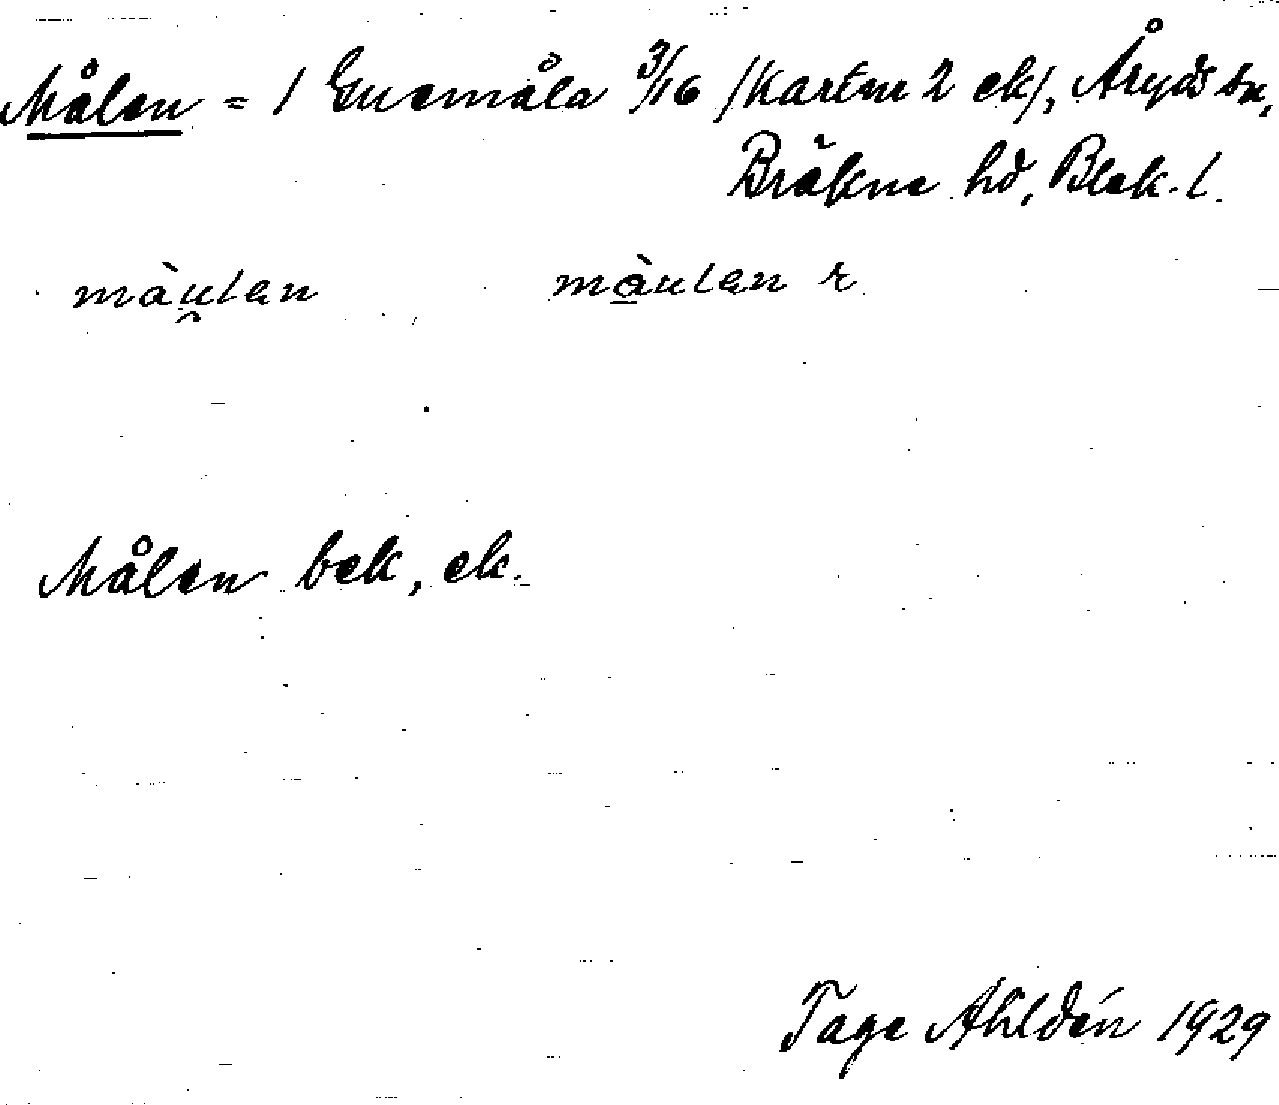 Målen = 1 Guemåla 3/16 /Kartne 2 ek/, Åryds sn,
Bräkne hd, Blek. l.
màu̯lan màulan r
Målen bek, ek.
Tage Ahldén 1929